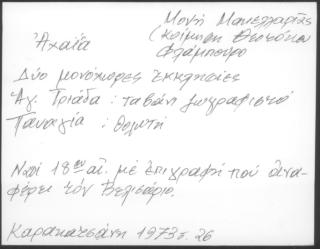 Ἀχαΐα
Μονή Μακελλαριᾶς
(Κοίμηση Θεοτόκου
Φλάμπουρο
Δύο μονόχωρες ἐκκλησίες
Ἁγ. Τριάδα : ταβάνι ζωγραφιστό
Παναγία : θολωτή
Ναοί 18ου αἰ. μέ ἐπιγραφή πού ἀνα-
φέρει τόν Βελισάριο.
Καρακατσάνη 1973 σ. 26